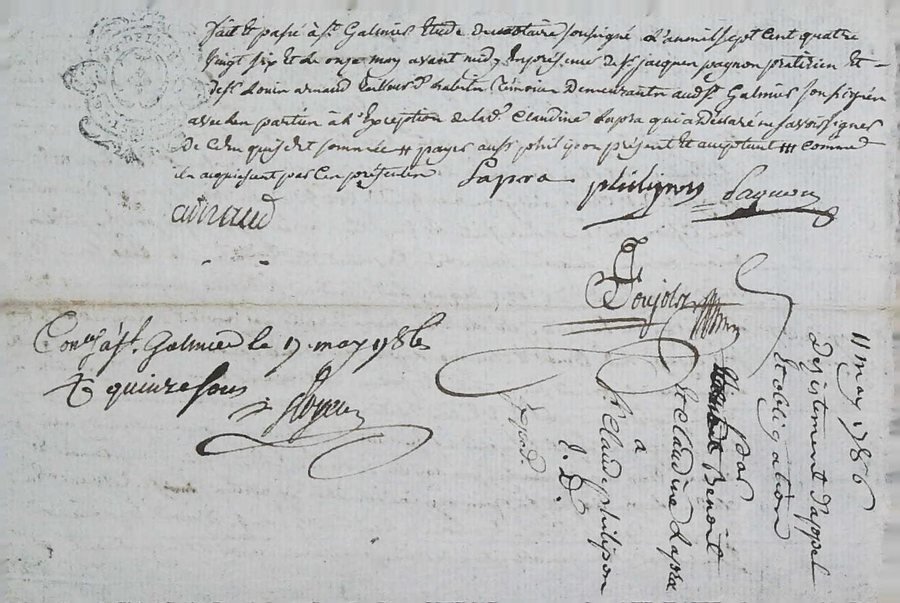 fait et passé à St Galmier Etude du notaire soussigné L'an mil sept Cent quatre
Vingt six Et le onze may avant midy En présence de Sr jacques pagnon praticien Et
de Sr Louis arnaud habitn témoins Demeurants aud. St Galmier soussignés
avec les parties à L'Exception de lad. Claudine Lapra qui a déclaré ne savoir signer
De Ce Enquis dit sommée # payer aud. philipon présent Et acceptant ### comme
en acquiesant par Ces présentes Lapra philipon Pagnon
arnaud
Poujola
Conlé à St. Galmier le 17 may 1786
R quinze sous
11 may 1786
Desistement d'appel
Et obligation
par
Benoit
Et Claudine Lapra
a
Sr Claude philipon
J. D.